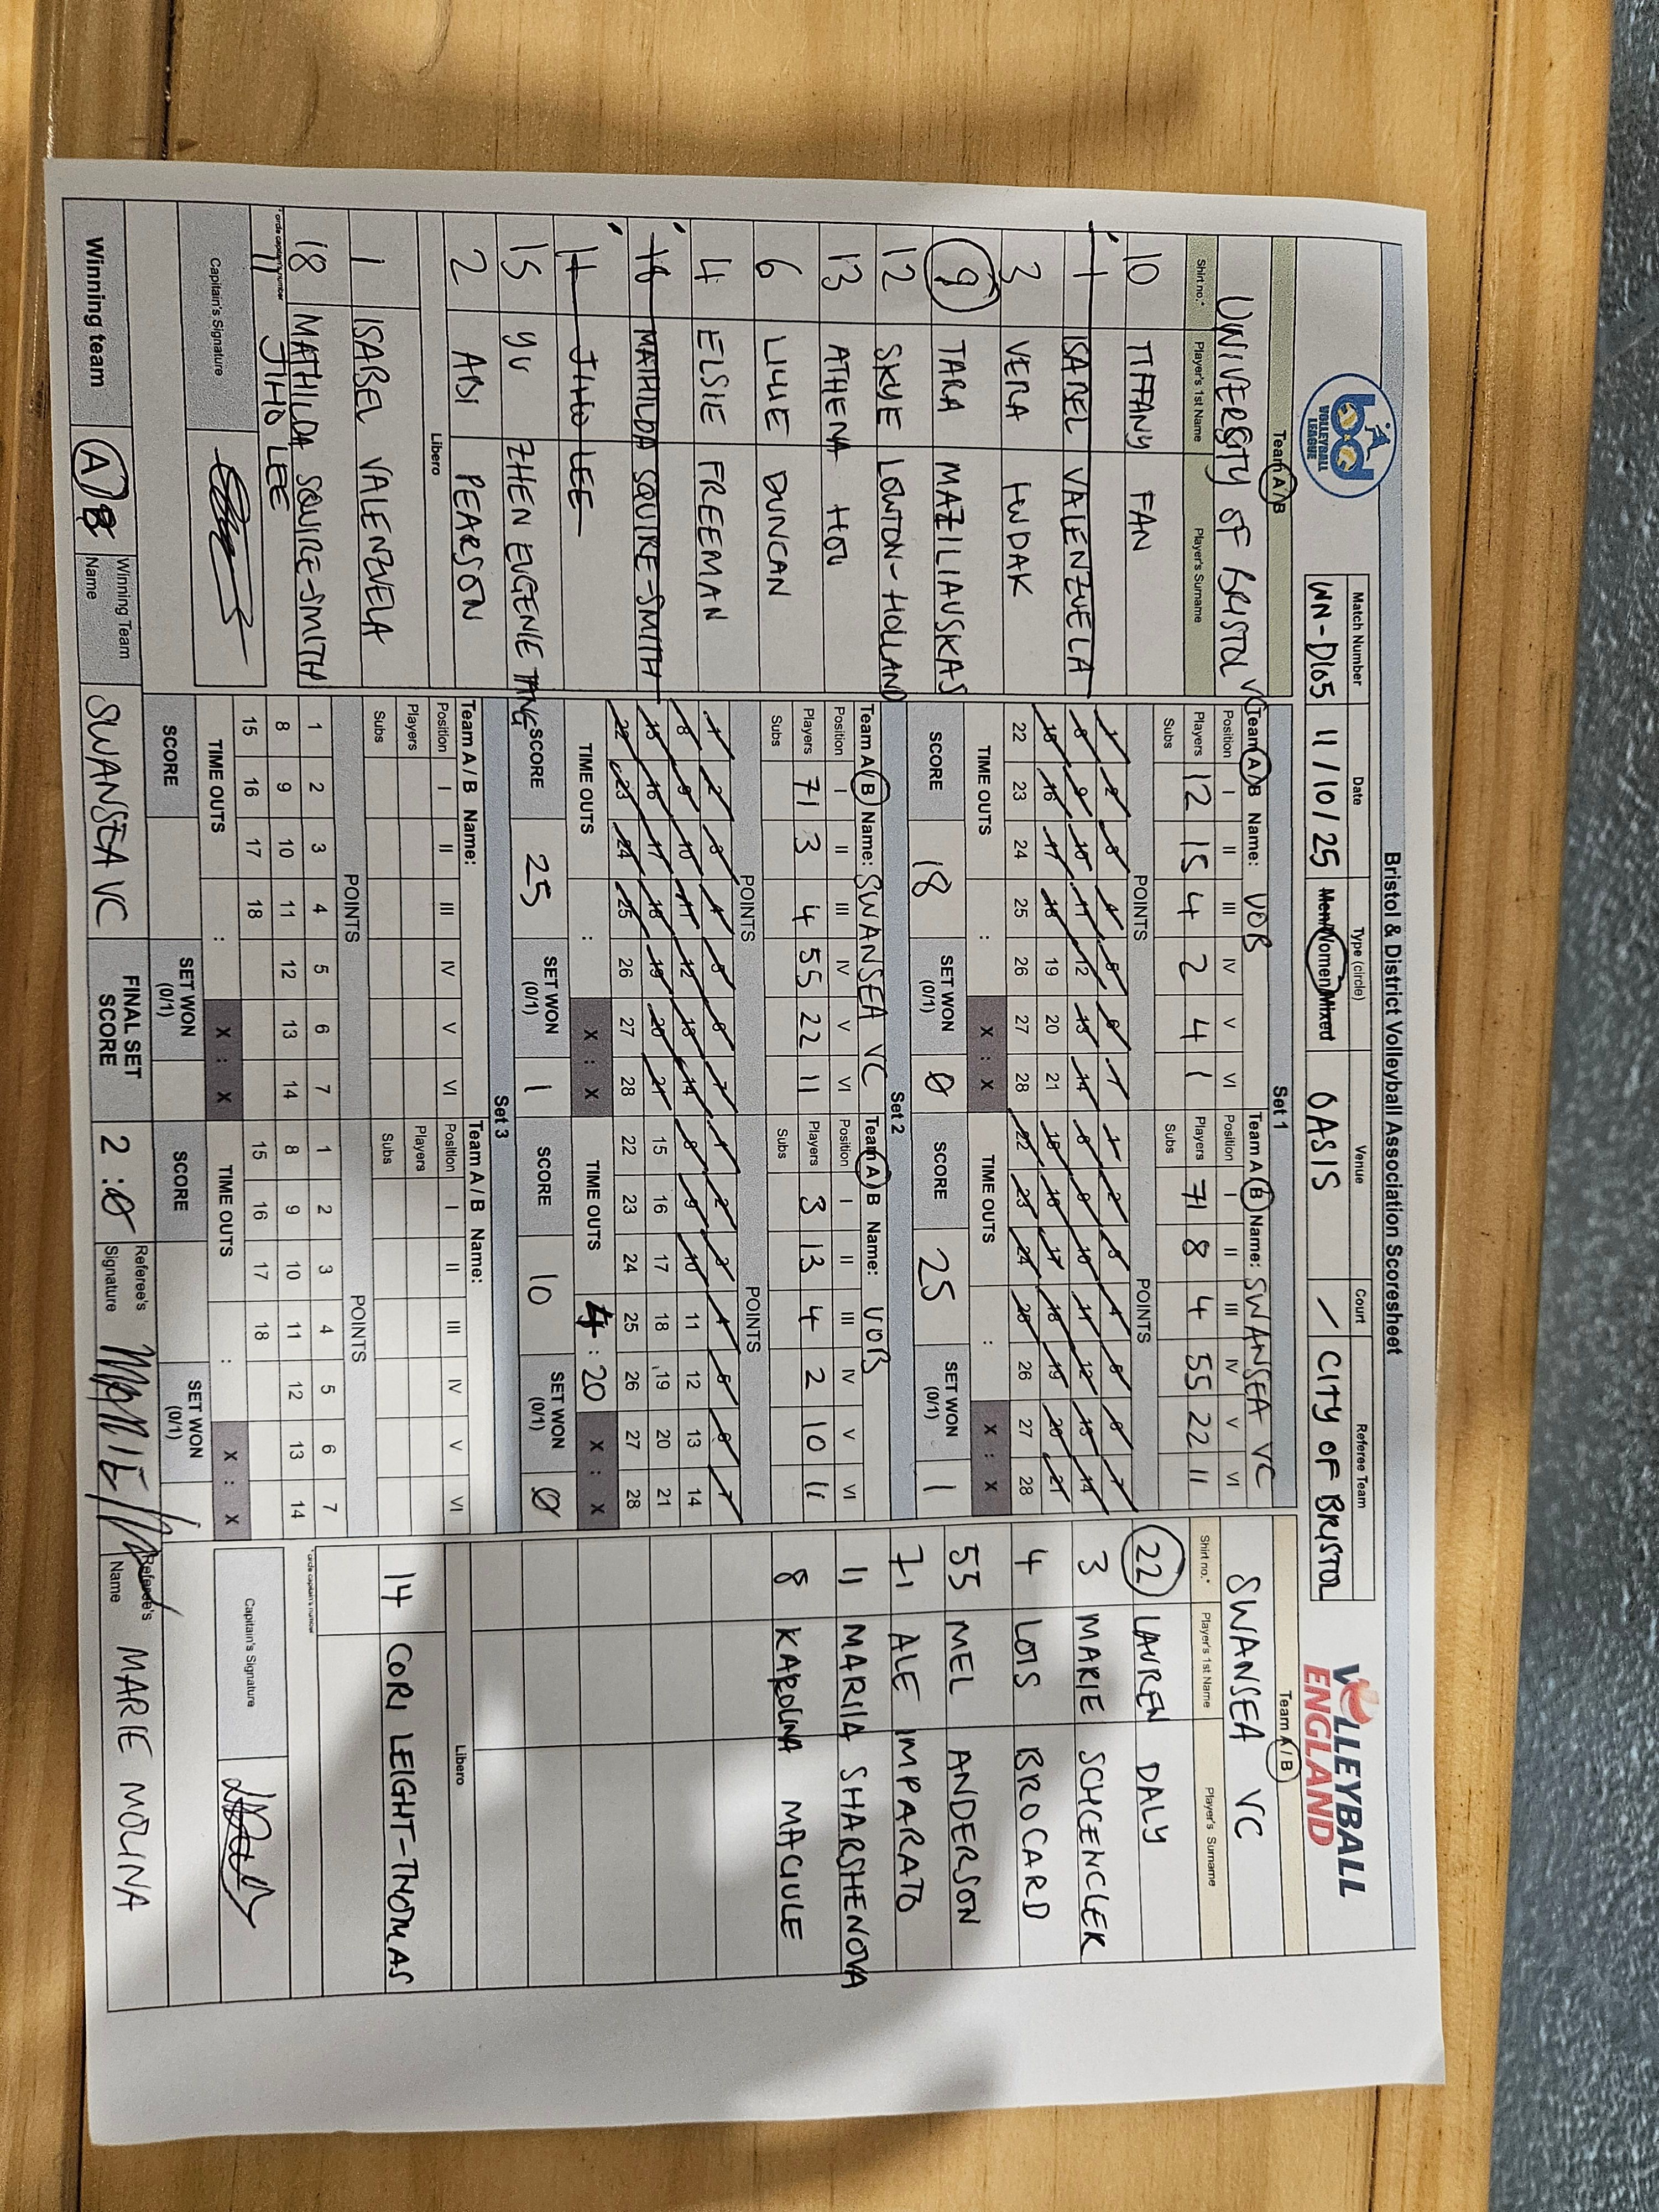 Bristol & District Volleyball Association Scoresheet
bd VOLLEYBALL LEAGUE
Match Number Date Type (circle) Venue Court Referee Team
WN-D105 11/10/25 Men/Women/Mixed OASIS / CITY OF BRISTOL
VOLLEYBALL ENGLAND
Team A/B
UNIVERSITY OF BRISTOL VC
Shirt no.* Player's 1st Name Player's Surname
10 TIFFANY FAN
1 ISABEL VALENZUELA
3 VERA
9 TARA MAZILIAUSKAS
12 SKYE LOWTON-HOLLAND
13 ATHENA HOU
6 LILLIE DUNCAN
4 ELSIE FREEMAN
18 MATHILDA SQUIRE-SMITH
11 JIHO LEE
15 YU ZHEN EUGENIE TANG
2 ABI PEARSON
Libero
1 ISABEL VALENZUELA
18 MATHILDA SQUIRE-SMITH
11 JIHO LEE
*circle captain's number
Captain's Signature
Set 1
Team A/B Name: UOB
Position I II III IV V VI
Players 12 15 4 2 4 1
Subs
POINTS
1 2 3 4 5 6 7
8 9 10 11 12 13 14
15 16 17 18 19 20 21
22 23 24 25 26 27 28
TIME OUTS : X : X
SCORE 18 SET WON (0/1) 0
Team A/B Name: SWANSEA VC
Position I II III IV V VI
Players 71 8 4 55 22 11
Subs
POINTS
1 2 3 4 5 6 7
8 9 10 11 12 13 14
15 16 17 18 19 20 21
22 23 24 25 26 27 28
TIME OUTS : X : X
SCORE 25 SET WON (0/1) 1
Set 2
Team A/B Name: SWANSEA VC
Position I II III IV V VI
Players 71 3 4 55 22 11
Subs
POINTS
1 2 3 4 5 6 7
8 9 10 11 12 13 14
15 16 17 18 19 20 21
22 23 24 25 26 27 28
TIME OUTS : X : X
SCORE 25 SET WON (0/1) 1
Team A/B Name: UOB
Position I II III IV V VI
Players 3 13 4 2 10 11
Subs
POINTS
1 2 3 4 5 6 7
8 9 10 11 12 13 14
15 16 17 18 19 20 21
22 23 24 25 26 27 28
TIME OUTS 4 : 20 X : X
SCORE 10 SET WON (0/1) 0
Set 3
Team A / B Name:
Position I II III IV V VI
Players
Subs
POINTS
1 2 3 4 5 6 7
8 9 10 11 12 13 14
15 16 17 18
TIME OUTS : X : X
SCORE SET WON (0/1)
Team A / B Name:
Position I II III IV V VI
Players
Subs
POINTS
1 2 3 4 5 6 7
8 9 10 11 12 13 14
15 16 17 18
TIME OUTS : X : X
SCORE SET WON (0/1)
Team A/B
SWANSEA VC
Shirt no.* Player's 1st Name Player's Surname
22 LAUREN DALY
3 MARIE SCHCENCLEK
4 LOIS BROCARD
55 MEL ANDERSON
71 ALE IMPARATO
11 MARIA SHARSHENOVA
8 KAROLINA MACIULE
Libero
14 CORI LEIGHT-THOMAS
*circle captain's number
Captain's Signature
Winning team A/B Winning Team Name SWANSEA VC FINAL SET SCORE 2:0 Referee's Signature Referee's Name MARIE MOLINA